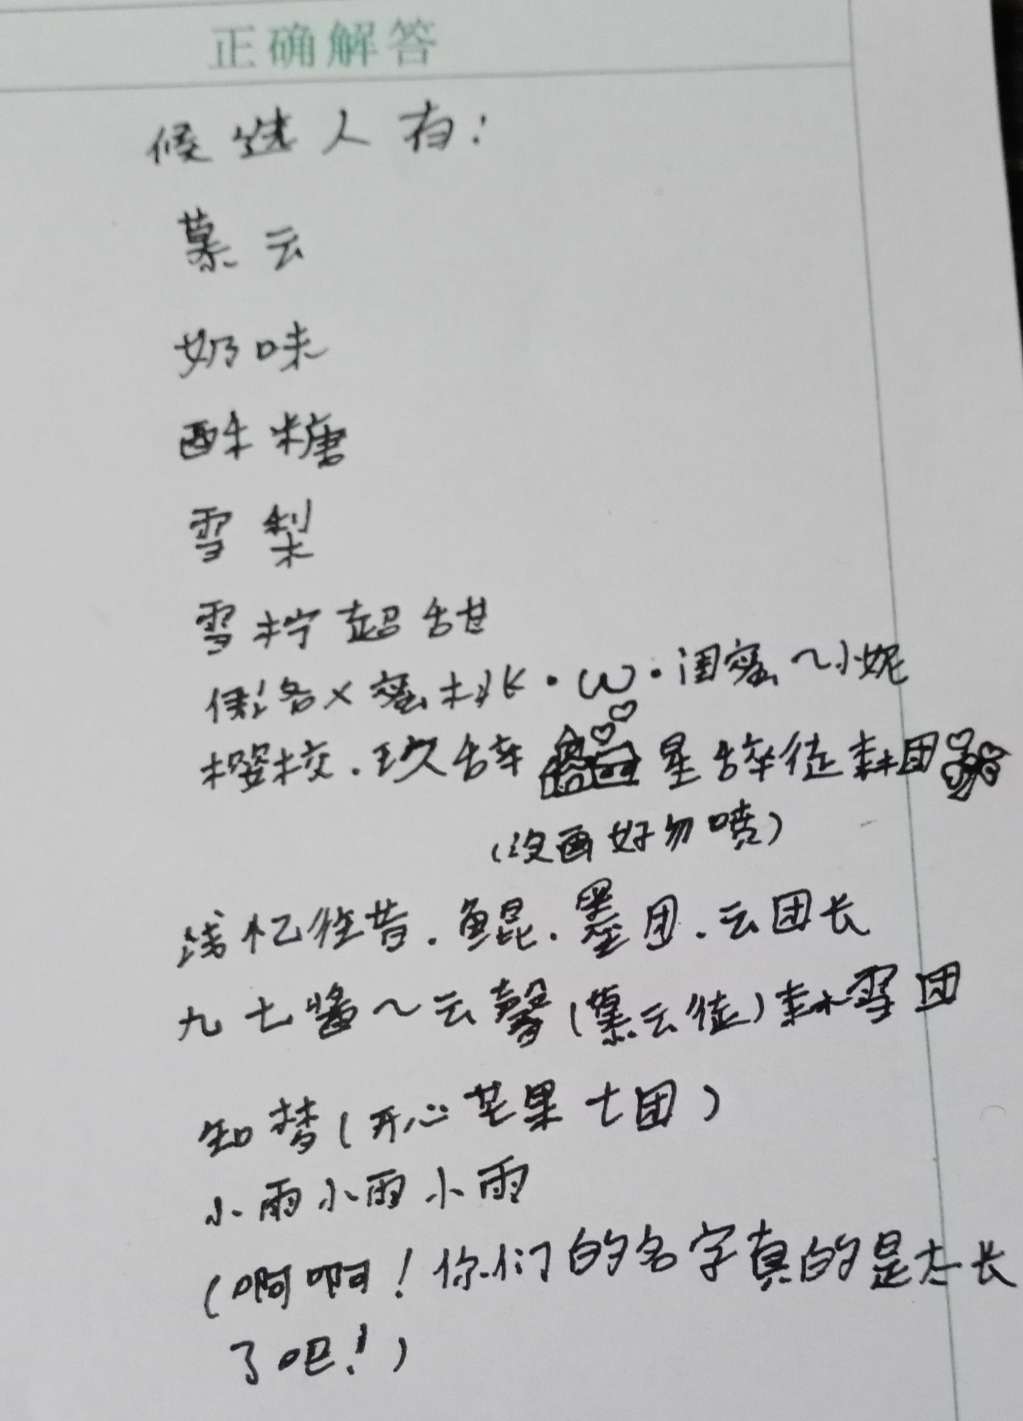 正确解答
候选人有：
慕云
奶味
酥糖
雪梨
雪柠超甜
蜜桃·ω·闺蜜～小妮
樱校.玖辞 星辞徒 森团
（没画好勿喷）
浅忆往昔.鲲.墨团.云团长
九七酱～云馨（慕云徒）森雪团
知梦（开心芒果七团）
小雨小雨小雨
（啊啊！你们的名字真的是太长
了吧！）